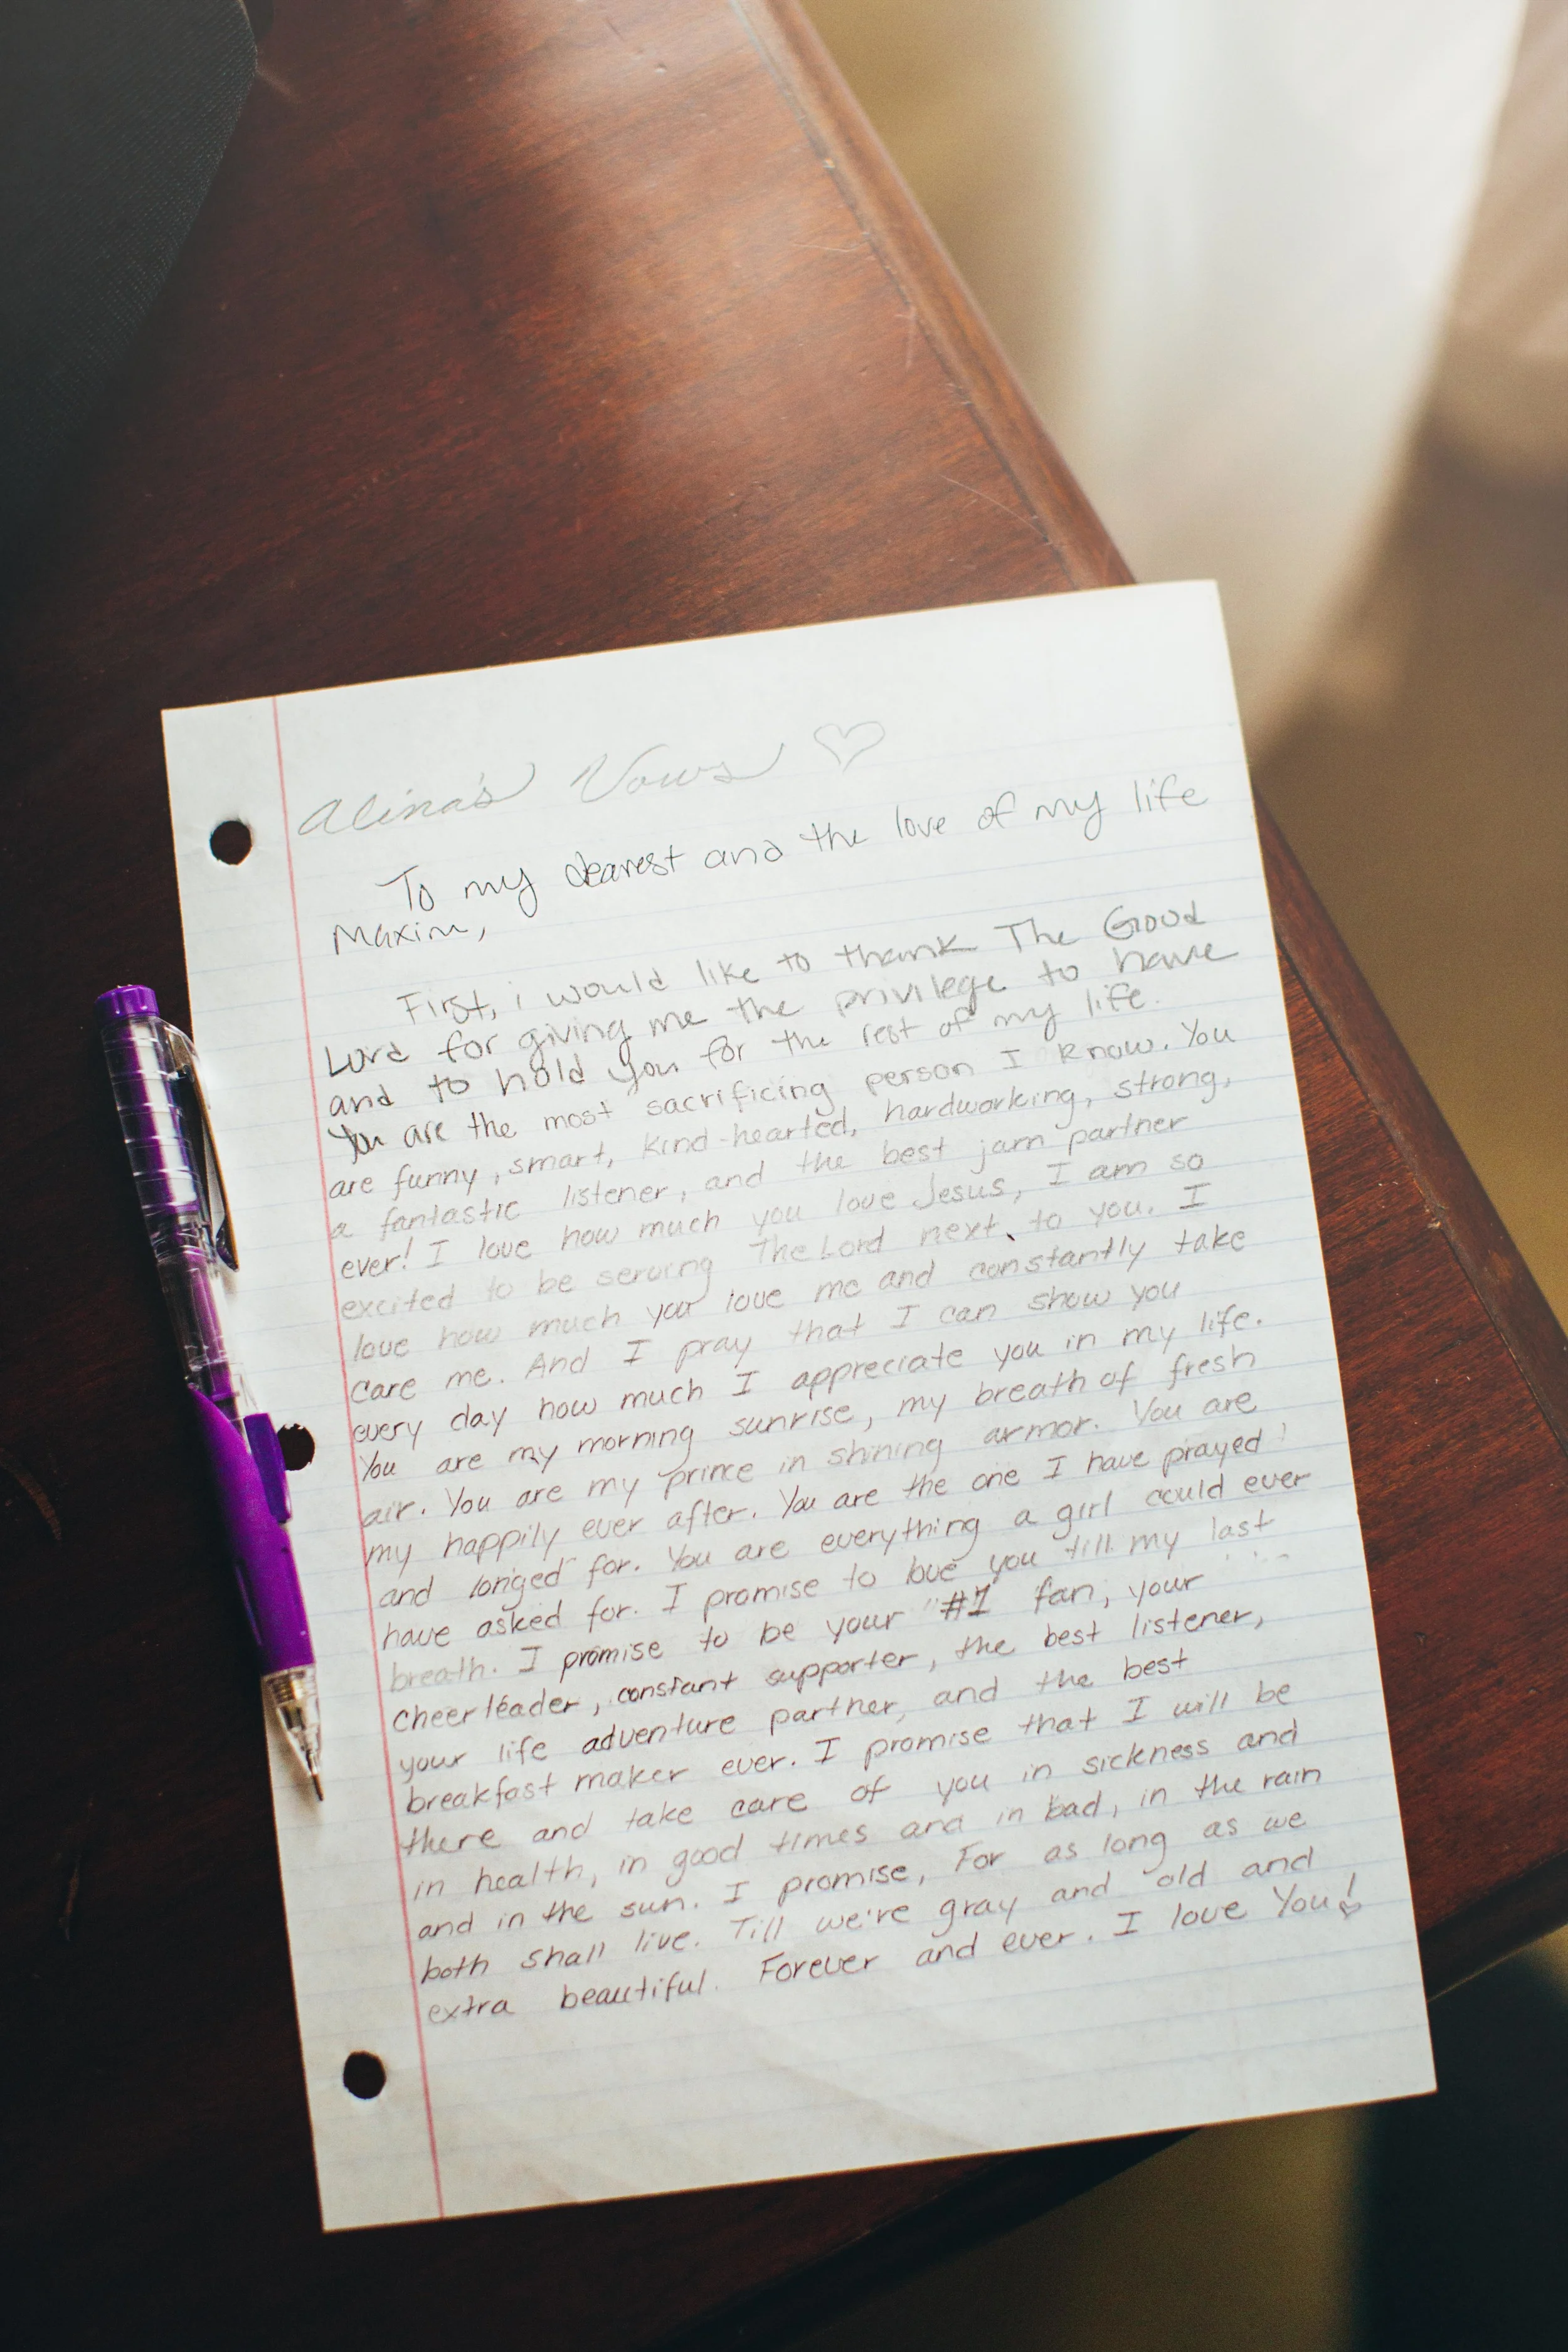 Alina's Vows ♡
To my dearest and the love of my life
Maxim,
First, i would like to thank The Good
Lord for giving me the privilege to have
and to hold you for the rest of my life.
You are the most sacrificing person I know. You
are funny, smart, kind-hearted, hardworking, strong,
a fantastic listener, and the best jam partner
ever! I love how much you love Jesus, I am so
excited to be serving The Lord next to you. I
love how much you love me and constantly take
care me. And I pray that I can show you
every day how much I appreciate you in my life.
You are my morning sunrise, my breath of fresh
air. You are my prince in shining armor. You are
my happily ever after. You are the one I have prayed
and longed for. You are everything a girl could ever
have asked for. I promise to love you till my last
breath. I promise to be your "#1" fan, your
cheerleader, constant supporter, the best listener,
your life adventure partner, and the best
breakfast maker ever. I promise that I will be
there and take care of you in sickness and
in health, in good times and in bad, in the rain
and in the sun. I promise, For as long as we
both shall live. Till we're gray and old and
extra beautiful. Forever and ever. I love You!